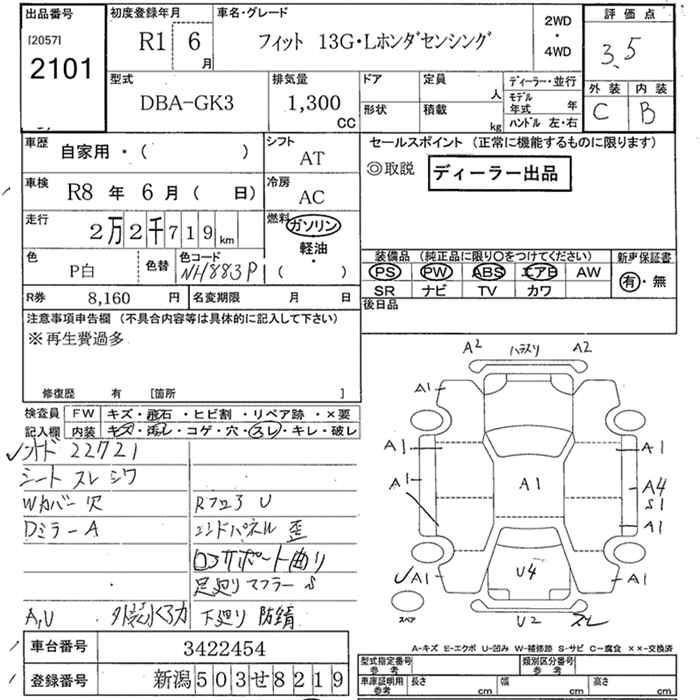 出品番号
[2057]
2101
初度登録年月
R1 6月
車名・グレード
フィット 13G・Lホンダセンシング
2WD
・
4WD
評価点
3.5
外装 内装
C B
型式
DBA-GK3
排気量
1,300
CC
ドア
形状
定員
人
積載
kg
ディーラー・並行
モデル年式 年
ハンドル 左・右
車歴
自家用・( )
シフト
AT
車検
R8年 6月( 日)
冷房
AC
走行
2万2千719km
燃料
ガソリン
軽油
・
( )
色
P白
色替
色コード
NH883P
R券 8,160 円
名変期限 月 日
セールスポイント (正常に機能するものに限ります)
◎取説
ディーラー出品
装備品 (純正品に限り○をつけてください)
PS PW ABS エアB AW
SR ナビ TV カワ
新車保証書
有・無
後日品
注意事項申告欄 (不具合内容等は具体的に記入して下さい)
※再生費過多
修復歴 有 [箇所 ]
検査員記入欄
FW キズ・飛石・ヒビ割・リペア跡・×要
内装 キズ・汚レ・コゲ・穴・スレ・キレ・破レ
22721
シート スレ シワ
Wカバー欠
Dミラー A
Rフロア U
エンドパネル 歪
コアサポート曲り
足廻りマフラー S
A,U
下廻り 防錆
A2 A2
A1
A1 A1
A1 A1 A4
S1
A1
U4
A1 A1
U2 スレ
スペア
A-キズ E-エクボ U-凹み W-補修跡 S-サビ C-腐食 ××-交換済
車台番号 3422454
登録番号 新潟503せ8219
型式指定番号
参考
類別区分番号
参考
車庫証明用
参考
長さ cm
幅 cm
高さ cm